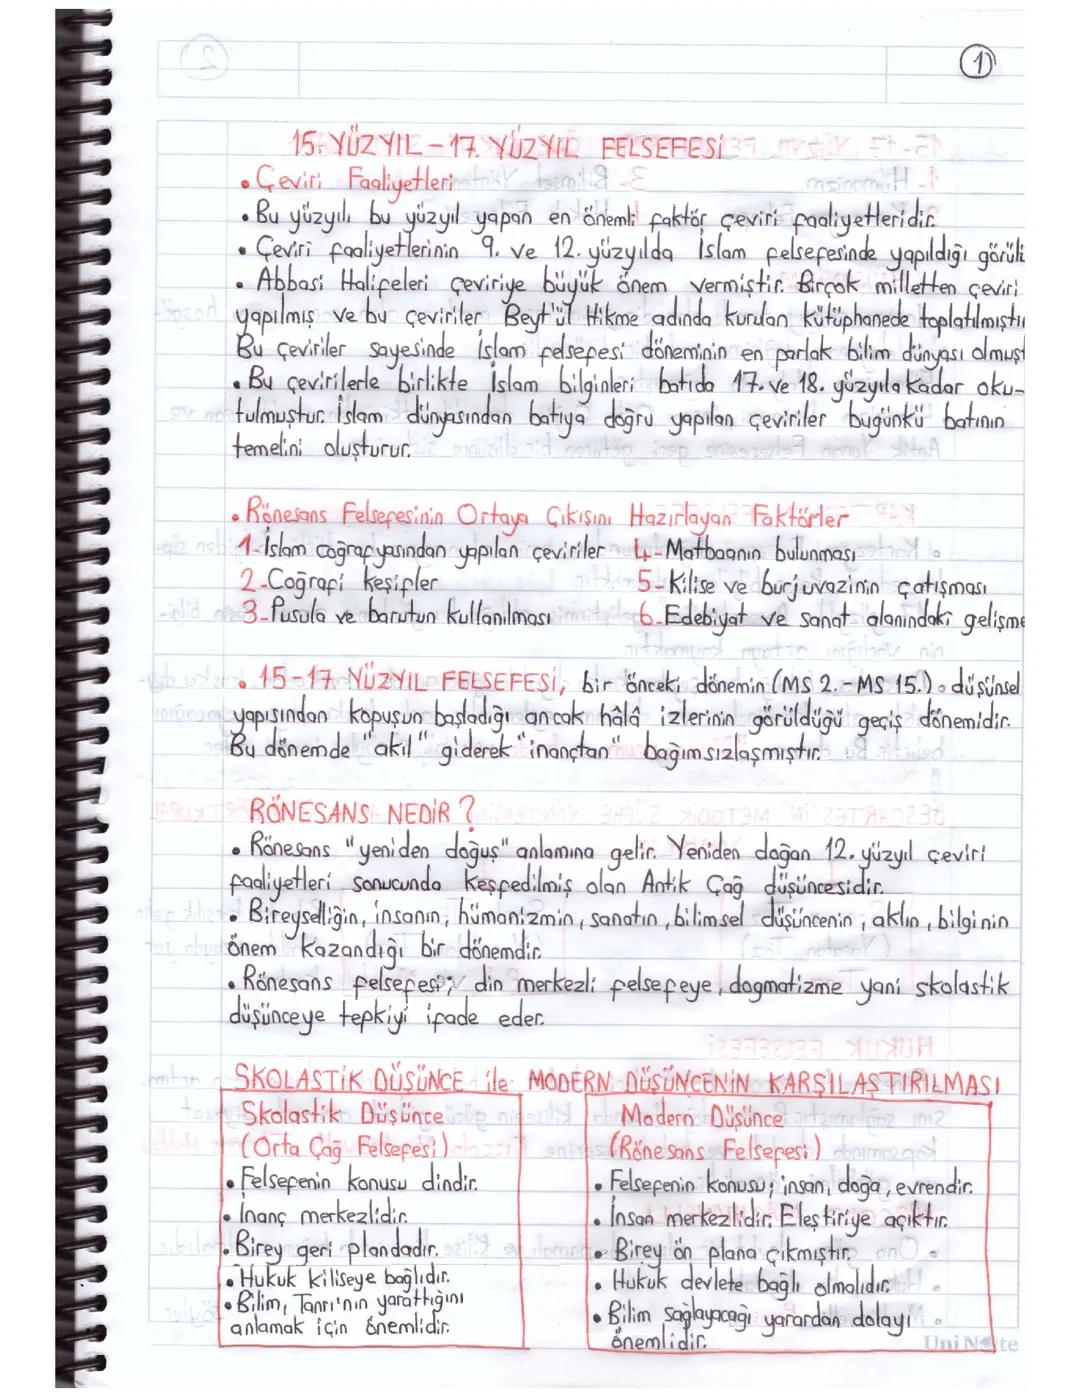 1
15. YÜZYIL - 17. YÜZYIL FELSEFESİ
• Çeviri Faaliyetleri
• Bu yüzyılı bu yüzyıl yapan en önemli faktör çeviri faaliyetleridir.
• Çeviri faaliyetlerinin 9. ve 12. yüzyılda İslam felsefesinde yapıldığı görülü
• Abbasi Halifeleri çeviriye büyük önem vermiştir. Birçok milletten çeviri
yapılmış ve bu çeviriler Beyt'ül Hikme adında kurulan kütüphanede toplatılmıştır
Bu çeviriler sayesinde İslam felsefesi döneminin en parlak bilim dünyası olmuşt
• Bu çevirilerle birlikte İslam bilginleri batıda 17. ve 18. yüzyıla kadar oku-
tulmuştur. İslam dünyasından batıya doğru yapılan çeviriler bugünkü batının
temelini oluşturur.
• Rönesans Felsefesinin Ortaya Çıkışını Hazırlayan Faktörler
1-İslam coğrafyasından yapılan çeviriler 4-Matbaanın bulunması
2-Coğrafi keşifler 5-Kilise ve burjuvazinin çatışması
3-Pusula ve barutun kullanılması 6-Edebiyat ve sanat alanındaki gelişme
• 15-17. YÜZYIL FELSEFESİ, bir önceki dönemin (MS 2.-MS 15.) düşünsel
yapısından kopuşun başladığı ancak hâlâ izlerinin görüldüğü geçiş dönemidir.
Bu dönemde "akıl" giderek "inançtan" bağımsızlaşmıştır.
RÖNESANS NEDİR ?
• Rönesans "yeniden doğuş" anlamına gelir. Yeniden doğan 12. yüzyıl çeviri
faaliyetleri sonucunda keşfedilmiş olan Antik Çağ düşüncesidir.
• Bireyselliğin, insanın, hümanizmin, sanatın, bilimsel düşüncenin, aklın, bilginin
önem kazandığı bir dönemdir.
• Rönesans felsefesi; din merkezli felsefeye, dogmatizme yani skolastik
düşünceye tepkiyi ifade eder.
SKOLASTİK DÜŞÜNCE ile MODERN DÜŞÜNCENİN KARŞILAŞTIRILMASI
Skolastik Düşünce
(Orta Çağ Felsefesi)
• Felsefenin konusu dindir.
• İnanç merkezlidir.
• Birey geri plandadır.
• Hukuk kiliseye bağlıdır.
• Bilim, Tanrı'nın yarattığını
anlamak için önemlidir.
Modern Düşünce
(Rönesans Felsefesi)
• Felsefenin konusu; insan, doğa, evrendir.
• İnsan merkezlidir. Eleştiriye açıktır.
• Birey ön plana çıkmıştır.
• Hukuk devlete bağlı olmalıdır.
• Bilim sağlayacağı yarardan dolayı
önemlidir.
UniNote